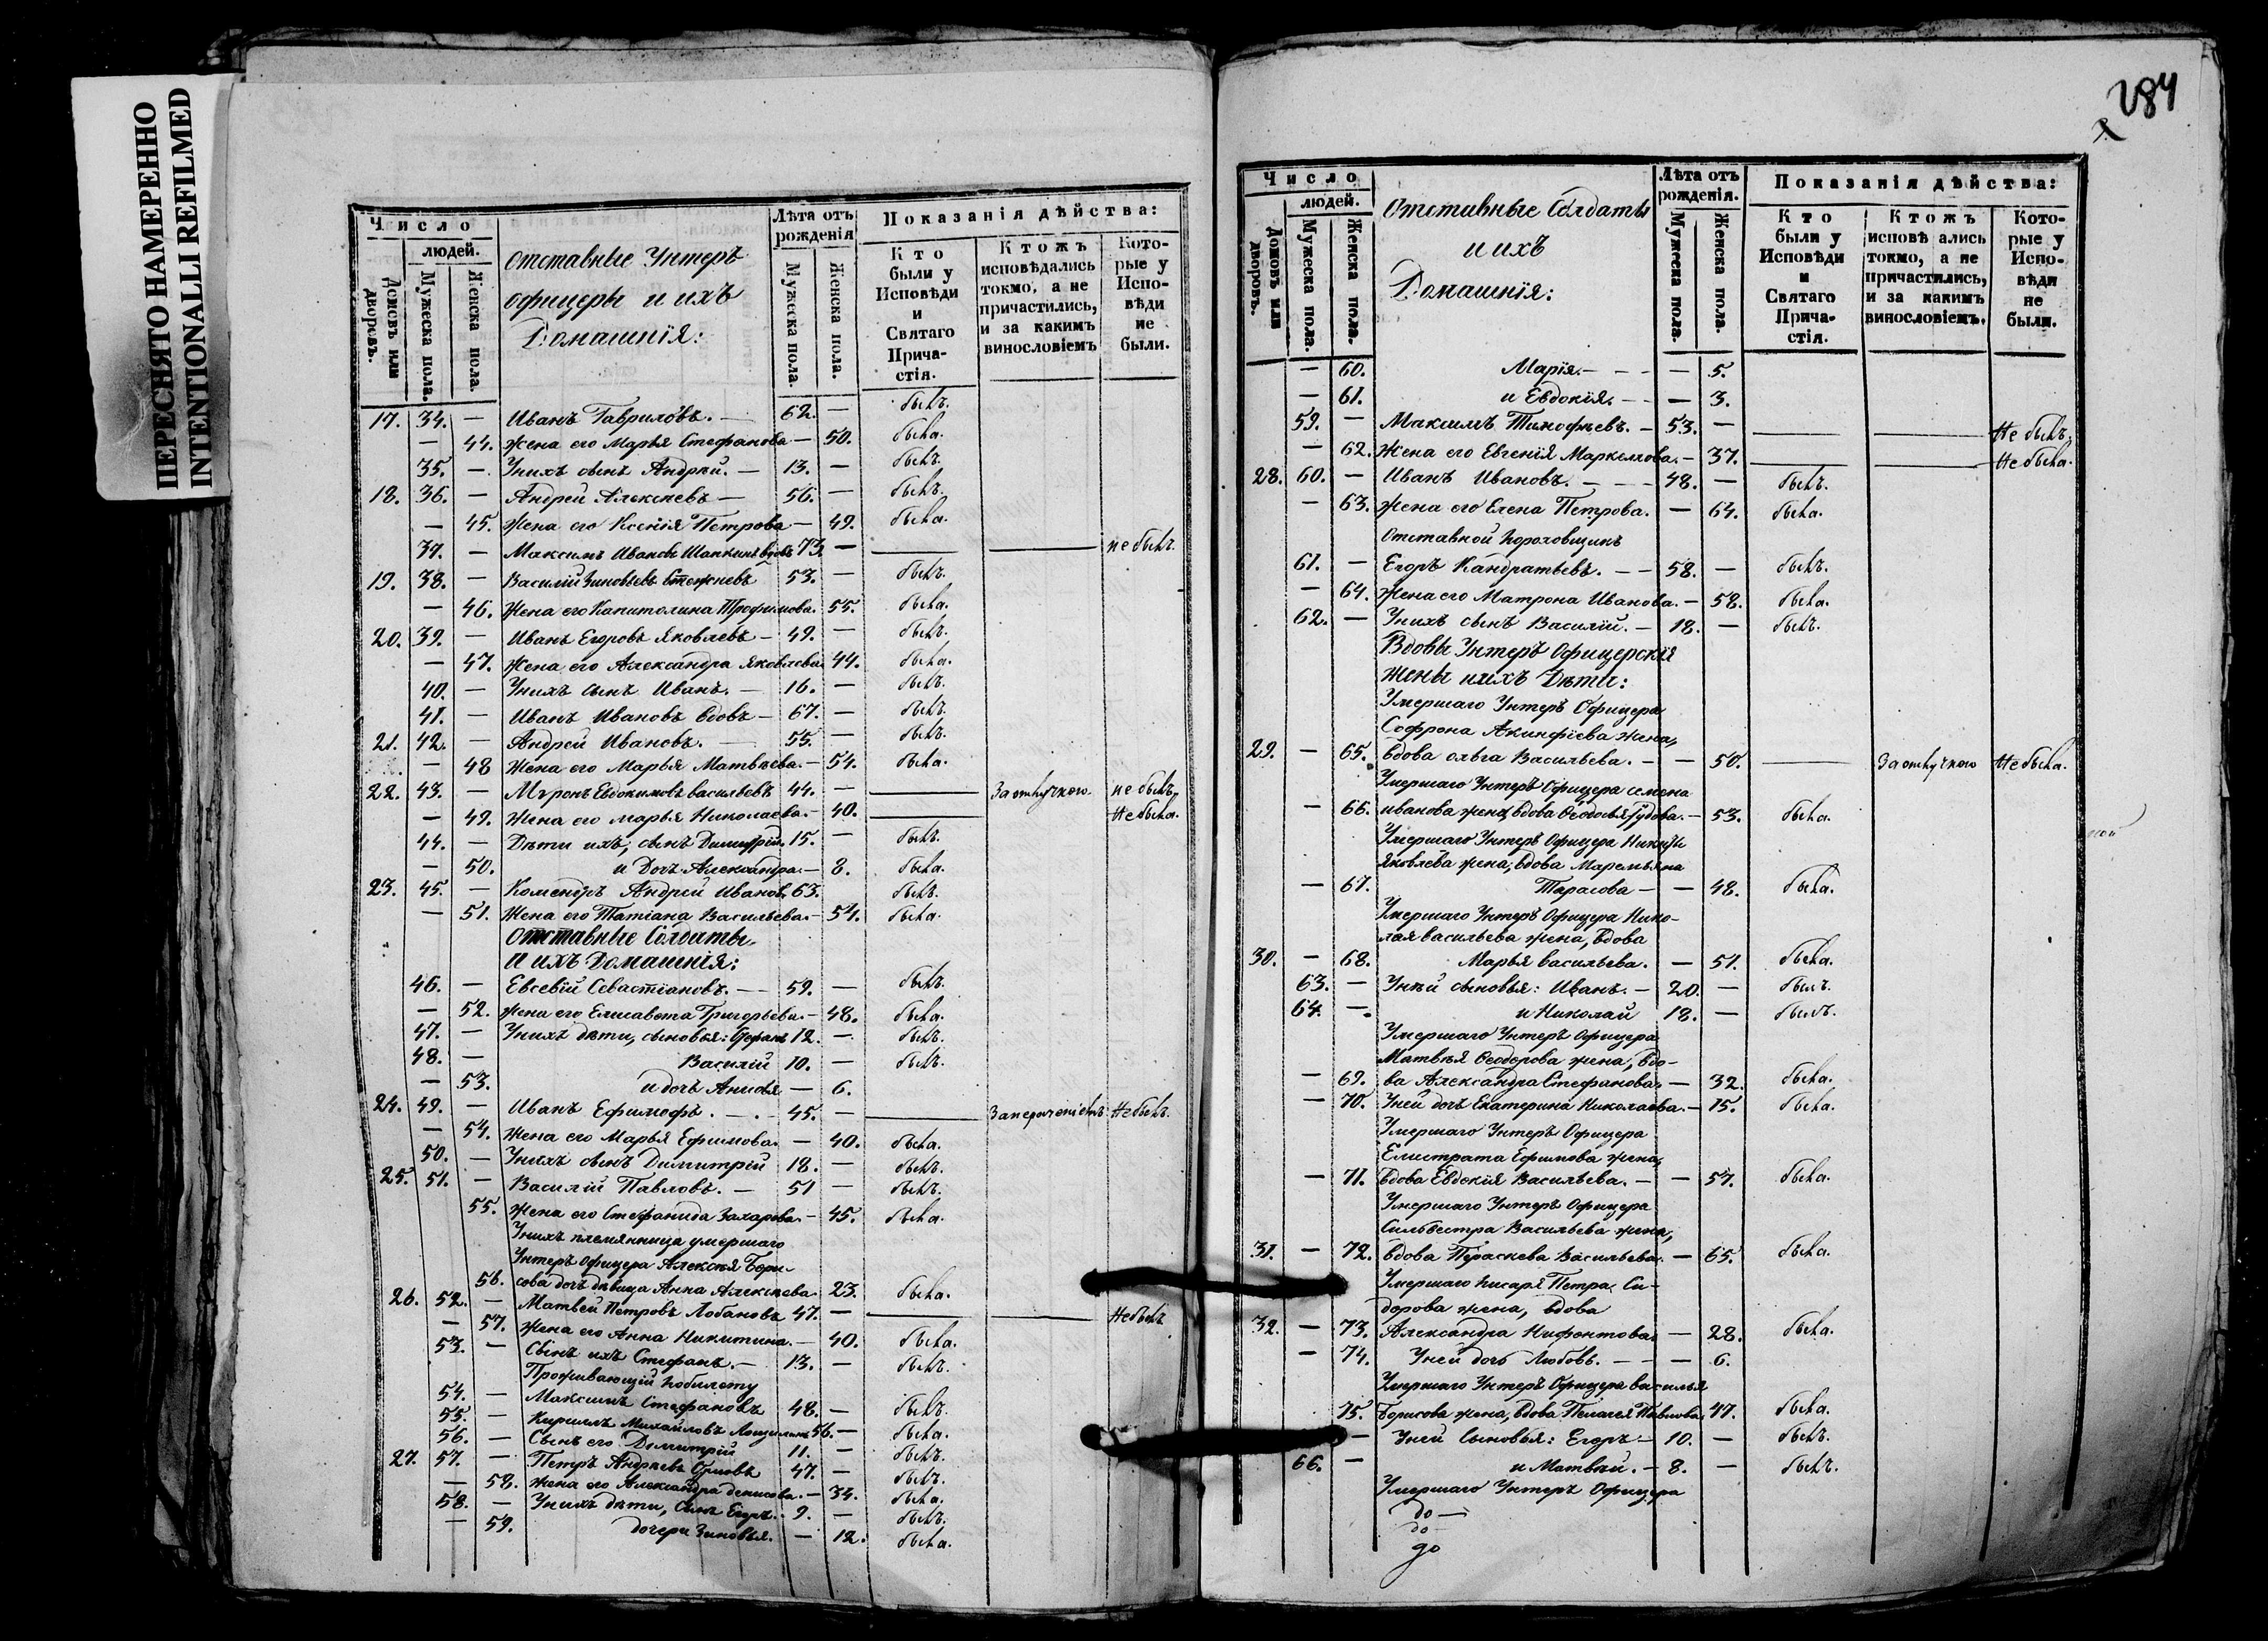 ПЕРЕСНЯТО НАМЕРЕННО
INTENTIONALLI REFILMED
Число
людей.
Домовъ или дворовъ.
Мужеска пола.
Женска пола.
Отставные Унтеръ
офицеры и ихъ
Домашнія:
Лѣта отъ рожденія
Мужеска пола.
Женска пола.
Показанія дѣйства:
Кто были у Исповѣди и Святаго Причастія.
Ктожъ исповѣдались токмо, а не причастились, и за какимъ винословіемъ
Которые у Исповѣди не были.
17. 34. — Иванъ Гавриловъ. — 62. — былъ.
— 44. Жена его Марья Стефанова — 50. была.
35. — У нихъ сынъ Андрей. — 13. — былъ.
18. 36. — Андрей Алексѣевъ — 56. — былъ.
— 45. Жена его Ксенія Петрова — 49. была.
37. — Максимъ Ивановъ Шапкинъ вдовъ 73. — не былъ.
19. 38. — Василій Зиновьевъ 53. — былъ.
— 46. Жена его Капитолина Трофимова. 55. была.
20. 39. — Иванъ Егоровъ Яковлевъ — 49. — былъ.
— 47. Жена его Александра Яковлева 44. была.
40. — У нихъ сынъ Иванъ. — 16. — былъ.
41. — Иванъ Ивановъ вдовъ — 67. — былъ.
21. 42. — Андрей Ивановъ. — 55. — былъ.
— 48 Жена его Марья Матвѣева. — 54. была.
22. 43. — Мѵронъ Евдокимовъ Васильевъ 44. — За отлучкою. не былъ.
— 49. Жена его Марья Николаева. — 40. Не была.
44. — Дѣти ихъ, сынъ Димитрій. 15. — былъ.
— 50. и дочь Александра. — 8. была.
23. 45. — Андрей Ивановъ. 63. былъ.
— 51. Жена его Татіана Васильева. — 54. была.
Отставные Солдаты
и ихъ Домашнія:
46. — Евсевій Севастіановъ. — 59. — былъ.
— 52. Жена его Елисавета Григорьева. — 48. была.
47. — У нихъ дѣти, сыновья: Стефанъ 12. — былъ.
48. — Василій 10. — былъ.
— 53. и дочь Анисья — 6.
24. 49. — Иванъ Ефимофъ. — 45. — Не былъ.
— 54. Жена его Марья Ефимова. — 40. была.
50. — У нихъ сынъ Димитрій 18. — былъ.
25. 51. — Василій Павловъ. — 51 — былъ.
55. Жена его Стефанида Захарова. — 45. была.
У нихъ племянница умершаго
Унтеръ офицера Алексѣя Бори-
56. сова дочь дѣвица Анна Алексѣева 23. была.
26. 52. — Матвей Петровъ Лобановъ 47. — Не былъ
— 57. Жена его Анна Никитина. — 40. была.
53. — Сынъ ихъ Стефанъ. — 13. — былъ.
Проживающій по билету
54. — Максимъ Стефановъ 48. — былъ.
55. — Кириллъ Михайловъ 56. — была.
56. — Сынъ его Димитрій 11. — былъ.
27. 57. — Петръ Андреевъ Орловъ 47. — былъ.
— 58. Жена его Александра Денисова. — 34. была.
58. — У нихъ дѣти, сынъ Егоръ. 9. — былъ.
— 59. дочери Зиновья. — 12. была.
284
Число
людей.
Домовъ или дворовъ.
Мужеска пола.
Женска пола.
Отставные Солдаты
и ихъ
Домашнія:
Лѣта отъ рожденія.
Мужеска пола.
Женска пола.
Показанія дѣйства:
Кто были у Исповѣди и Святаго Причастія.
Ктожъ исповѣ ались токмо, а не причастились, и за какимъ винословіемъ.
Которые у Исповѣди не были.
— 60. Марія. — — — 5.
— 61. и Евдокія. — — 3.
59. — Максимъ Тимофѣевъ. — 53. — Не былъ.
— 62. Жена его Евгенія Маркеллова. — 37. Не была.
28. 60. — Иванъ Ивановъ. — — — 48. — былъ.
— 63. Жена его Елена Петрова. — 64. была.
Отставной Пороховщикъ
61. — Егоръ Кандратьевъ. — — 58. — былъ.
— 64. Жена его Матрона Иванова. — 58. была.
62. — У нихъ сынъ Василій. — 18. — былъ.
Вдовы Унтеръ Офицерскія
жены и ихъ Дѣти:
Умершаго Унтеръ Офицера
Софрона Акинфіева жена,
29. — 65. вдова Ольга Васильева. — — 50. За отлучкою Не была.
Умершаго Унтеръ Офицера Семена
— 66. Иванова жена, вдова Ѳеодосья Гудова. — 53. была.
Умершаго Унтеръ Офицера Никиты
Яковлева жена, вдова Маремьяна
— 67. Тарасова — — 48. была.
Умершаго Унтеръ Офицера Нико-
лая Васильева жена, вдова
30. — 68. Марья Васильева. — 51. была.
63. — У нѣй сыновья: Иванъ. — 20. — былъ.
64. — и Николай 18. — былъ.
Умершаго Унтеръ Офицера
Матвѣя Ѳеодорова жена, вдо-
— 69. ва Александра Стефанова. — 32. была.
— 70. У ней дочь Екатерина Николаева. — 15. была.
Умершаго Унтеръ Офицера
Елистрата Ефимова жена,
— 71. вдова Евдокія Васильева. — — 57. была.
Умершаго Унтеръ Офицера
Сильвестра Васильева жена,
31. — 72. вдова Параскева Васильева. — 65. была.
Умершаго писаря Петра Си-
дорова жена, вдова
32. — 73. Александра Нифонтова. — 28. была.
— 74. У ней дочь Любовь. — — — 6.
Умершаго Унтеръ Офицера Василья
75. Борисова жена, вдова Пелагея Павлова. 47. была.
— У ней Сыновья: Егоръ — 10. — былъ.
66. — и Матвѣй. — 8. — былъ.
Умершаго Унтеръ Офицера
до —
до
до